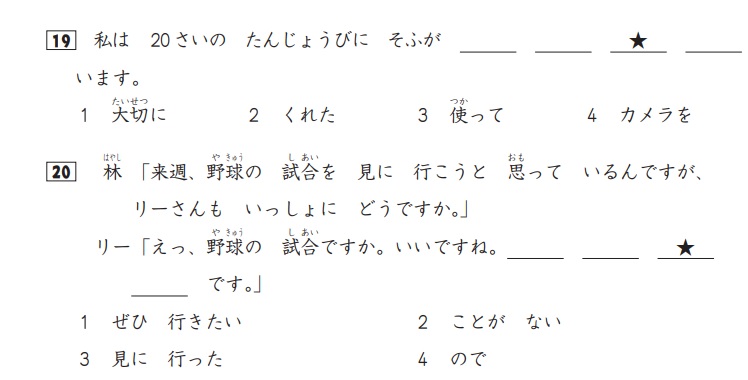 19 私は 20さいの たんじょうびに そふが ＿＿＿ ＿＿＿ ＿★＿ ＿＿＿
います。
1 大切に 2 くれた 3 使って 4 カメラを
20 林「来週、野球の 試合を 見に 行こうと 思って いるんですが、
リーさんも いっしょに どうですか。」
リー「えっ、野球の 試合ですか。いいですね。＿＿＿ ＿＿＿ ＿★＿
＿＿＿ です。」
1 ぜひ 行きたい 2 ことが ない
3 見に 行った 4 ので